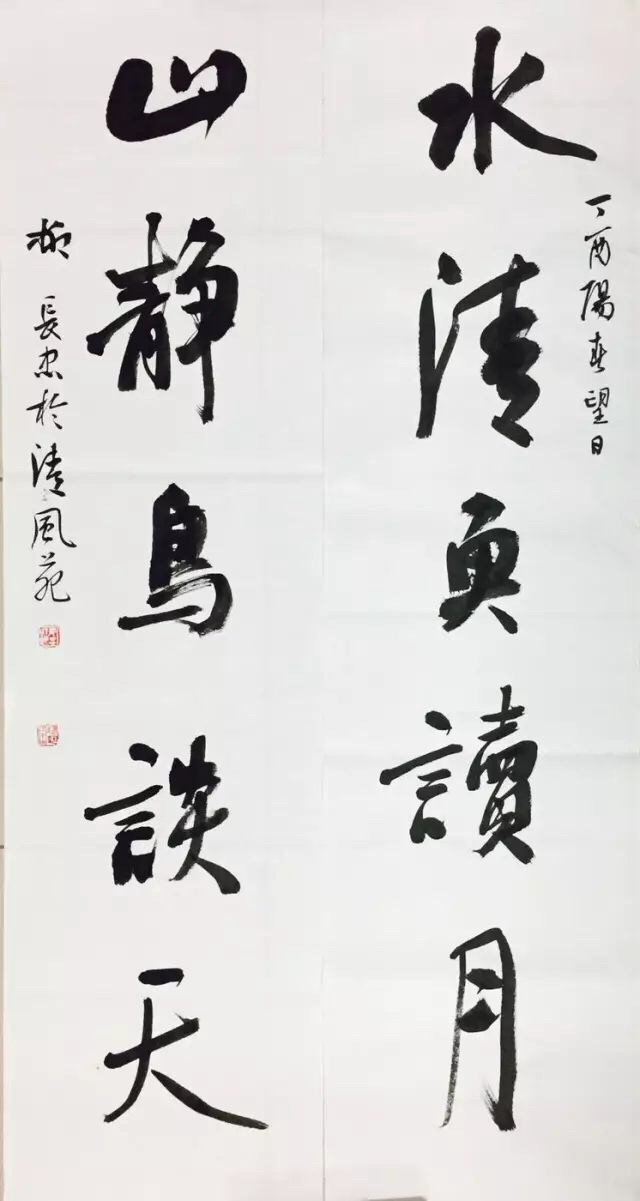 丁酉陽春望日
水清魚讀月
山靜鳥談天
柳長忠於清風苑